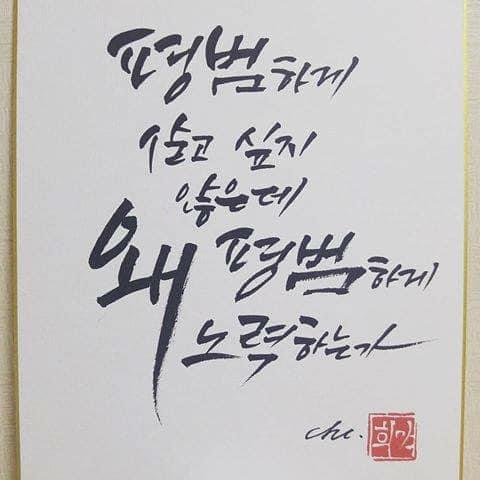 평범하게
살고 싶지
않은데
왜 평범하게
노력하는가
chu.